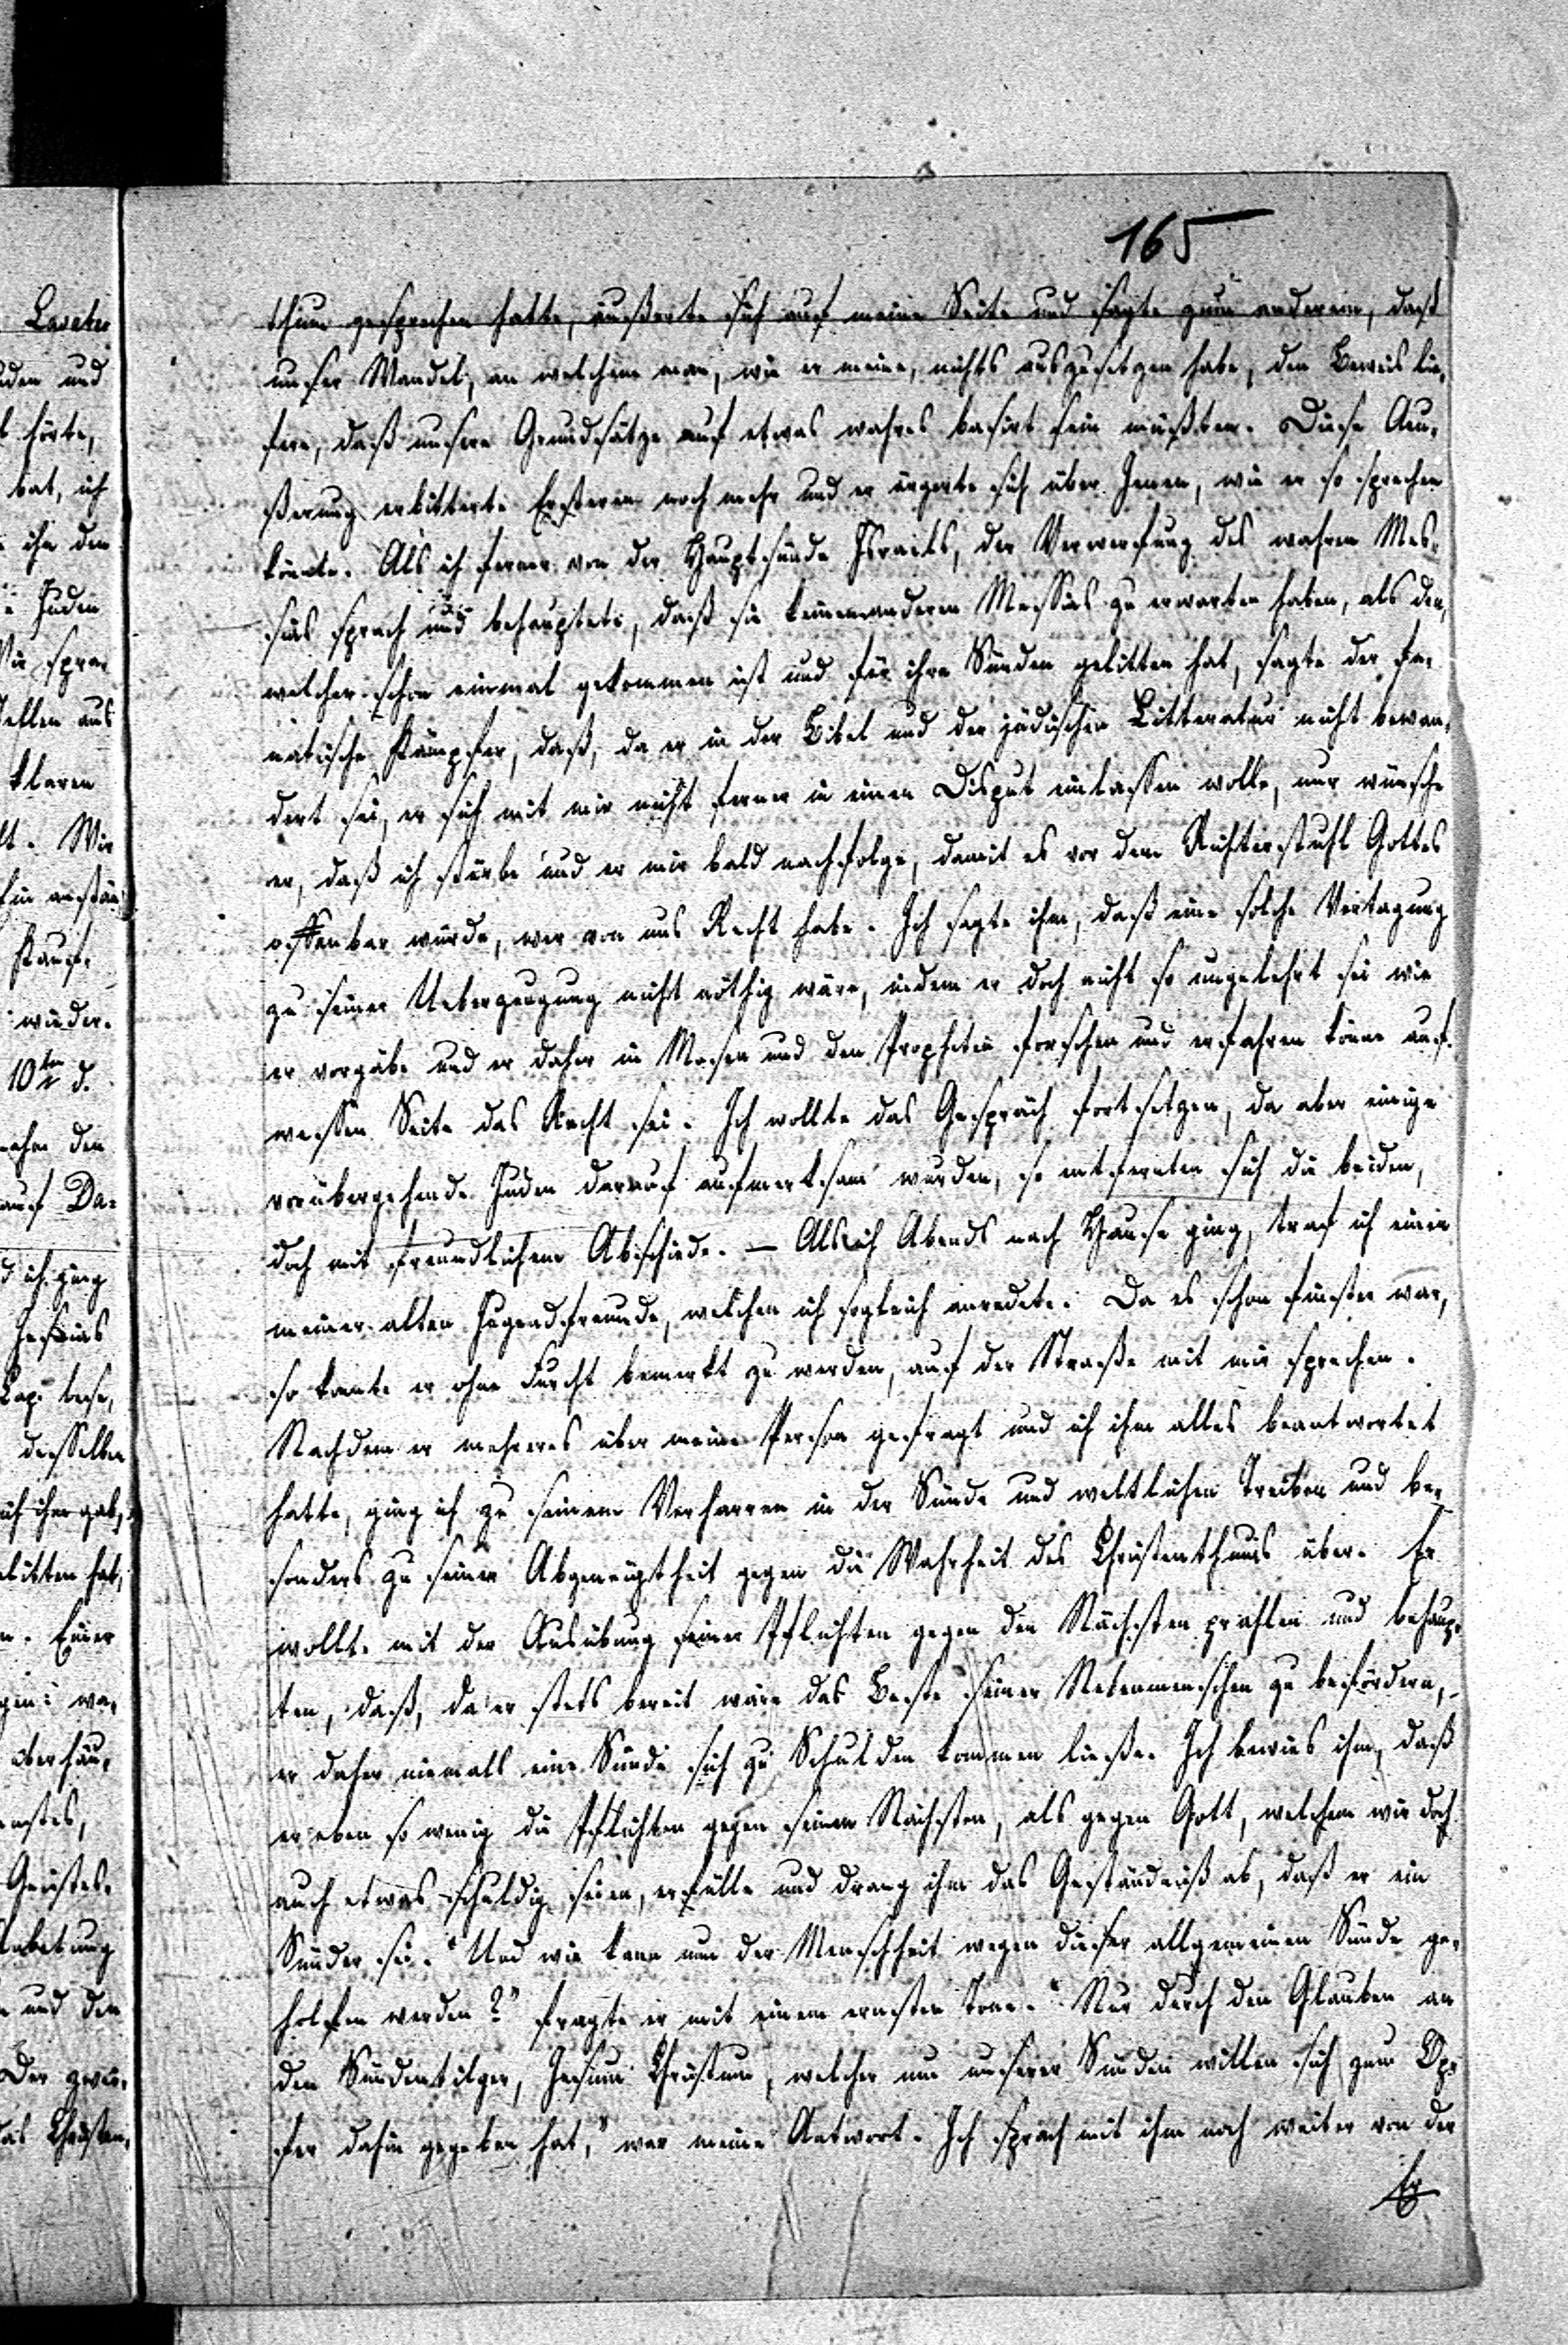 165
thum gesprochen hatte, äußerte sich auf meine Seite und sagte zum anderen, daß
unser Wandel, an welchem man, wie er meine, nichts auszusetzen habe, den Beweis lie-
fere, daß unsere Grundsätze auf etwas wahres basirt sein müßten. Diese Aeu-
ßerung erbitterte Ersteren noch mehr und er ärgerte sich über Jenen, wie er so sprechen
könnte. Als ich ferner von der Hauptsünde Israels, der Verwerfung des wahren Mes-
sias sprach und behauptete, daß sie keinen anderen Messias zu erwarten haben, als den,
welcher schon einmal gekommen ist und für ihre Sünden gelitten hat, sagte der fa-
natische Kämpfer, daß, da er in der Bibel und der jüdischen Litteratur nicht bewan-
dert sei, er sich mit mir nicht ferner in einen Disput einlassen wolle, nur wünsche
er, daß ich stürbe und er mir bald nachfolge, damit es vor dem Richterstuhl Gottes
offenbar würde, wer von uns Recht habe. Ich sagte ihm, daß eine solche Vertagung
zu seiner Ueberzeugung nicht nöthig wäre, indem er doch nicht so ungelehrt sei wie
er vorgäbe und er daher in Mosen und den Propheten forschen und erfahren könne auf
wessen Seite das Recht sei. Ich wollte das Gespräch fortsetzen, da aber einige
vorübergehende Juden darauf aufmerksam wurden, so entfernten sich die beiden,
doch mit freundlichem Abschiede. — Als ich Abends nach Hause ging, traf ich einen
meiner alten Jugendfreunde, welchen ich sogleich anredete. Da es schon finster war,
so konnte er ohne Furcht bemerkt zu werden, auf der Straße mit mir sprechen.
Nachdem er mehreres über meine Person gefragt und ich ihm alles beantwortet
hatte, ging ich zu seinem Verharren in der Sünde und weltlichen Treiben und be-
sonders zu seiner Abgeneigtheit gegen die Wahrheit des Christenthums über. Er
wollte mit der Ausübung seiner Pflichten gegen den Nächsten prahlen und behaup-
ten, daß, da er stets bereit wäre das Beste seiner Nebenmenschen zu befördern,
er daher niemals eine Sünde sich zu Schulden kommen ließe. Ich bewies ihm, daß
er eben so wenig die Pflichten gegen seinen Nächsten, als gegen Gott, welchem wir doch
auch etwas schuldig seien, erfülle und drang ihm das Geständniß ab, daß er ein
Sünder sei. "Und wie kann nun der Menschheit wegen dieser allgemeinen Sünde ge-
holfen werden?" fragte er mit einem ernsten Tone. "Nur durch den Glauben an
den Sündentilger, Jesum Christum, welcher um unserer Sünden willen sich zum Op-
fer dahin gegeben hat," war meine Antwort. Ich sprach mit ihm noch weiter von der